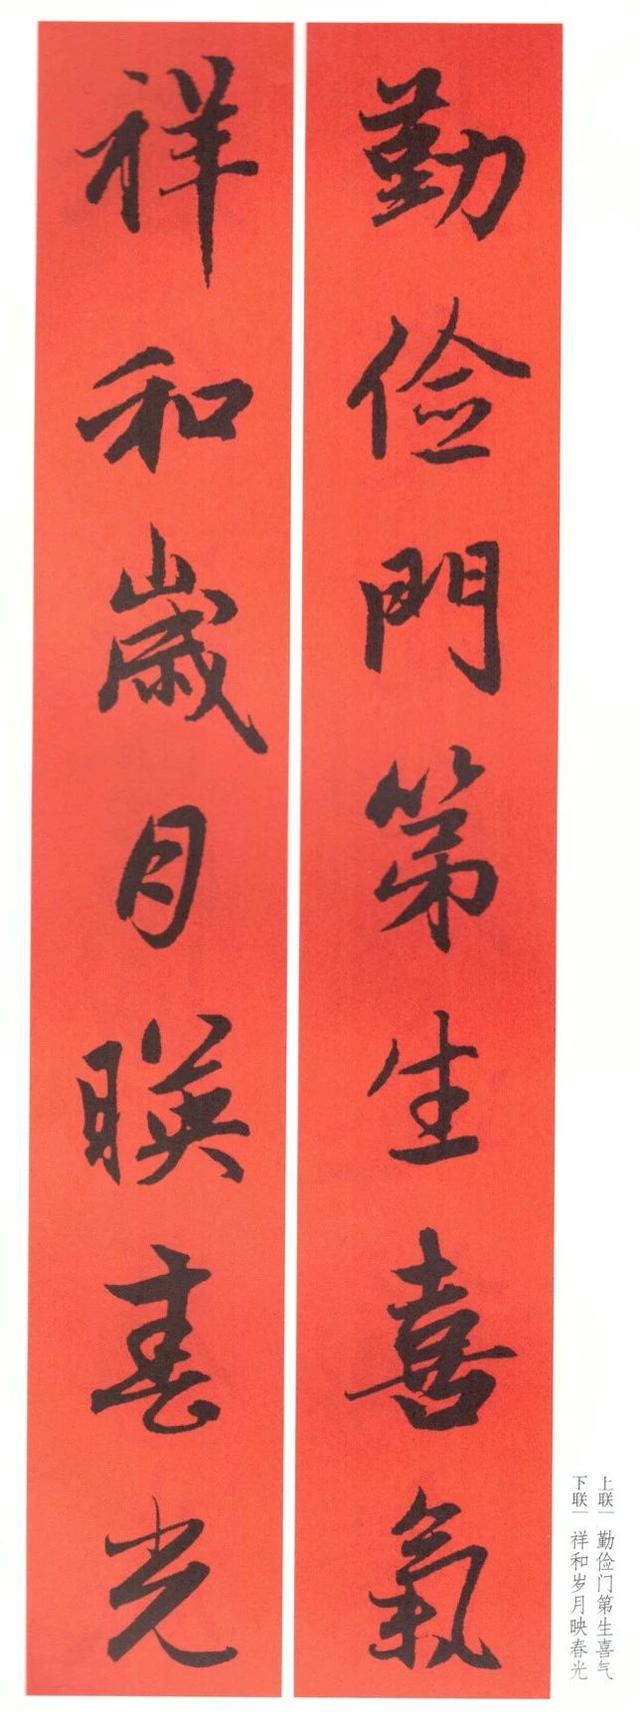 勤俭門第生喜氣
祥和歲月暎春光
上联｜勤俭门第生喜气
下联｜祥和岁月映春光